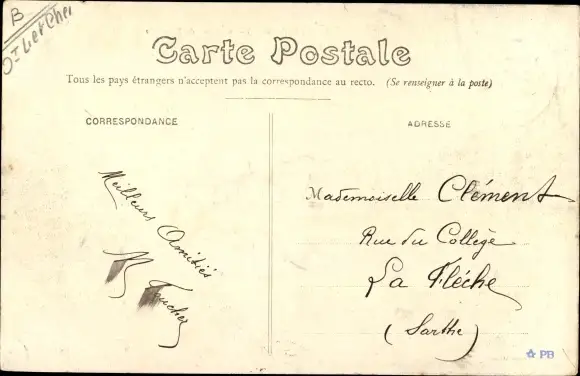 B
Carte Postale
Tous les pays étrangers n'acceptent pas la correspondance au recto. (Se renseigner à la poste)
CORRESPONDANCE
Meilleurs Amitiés
ADRESSE
Mademoiselle Clément
Rue du Collège
La Flèche
(Sarthe)
PB